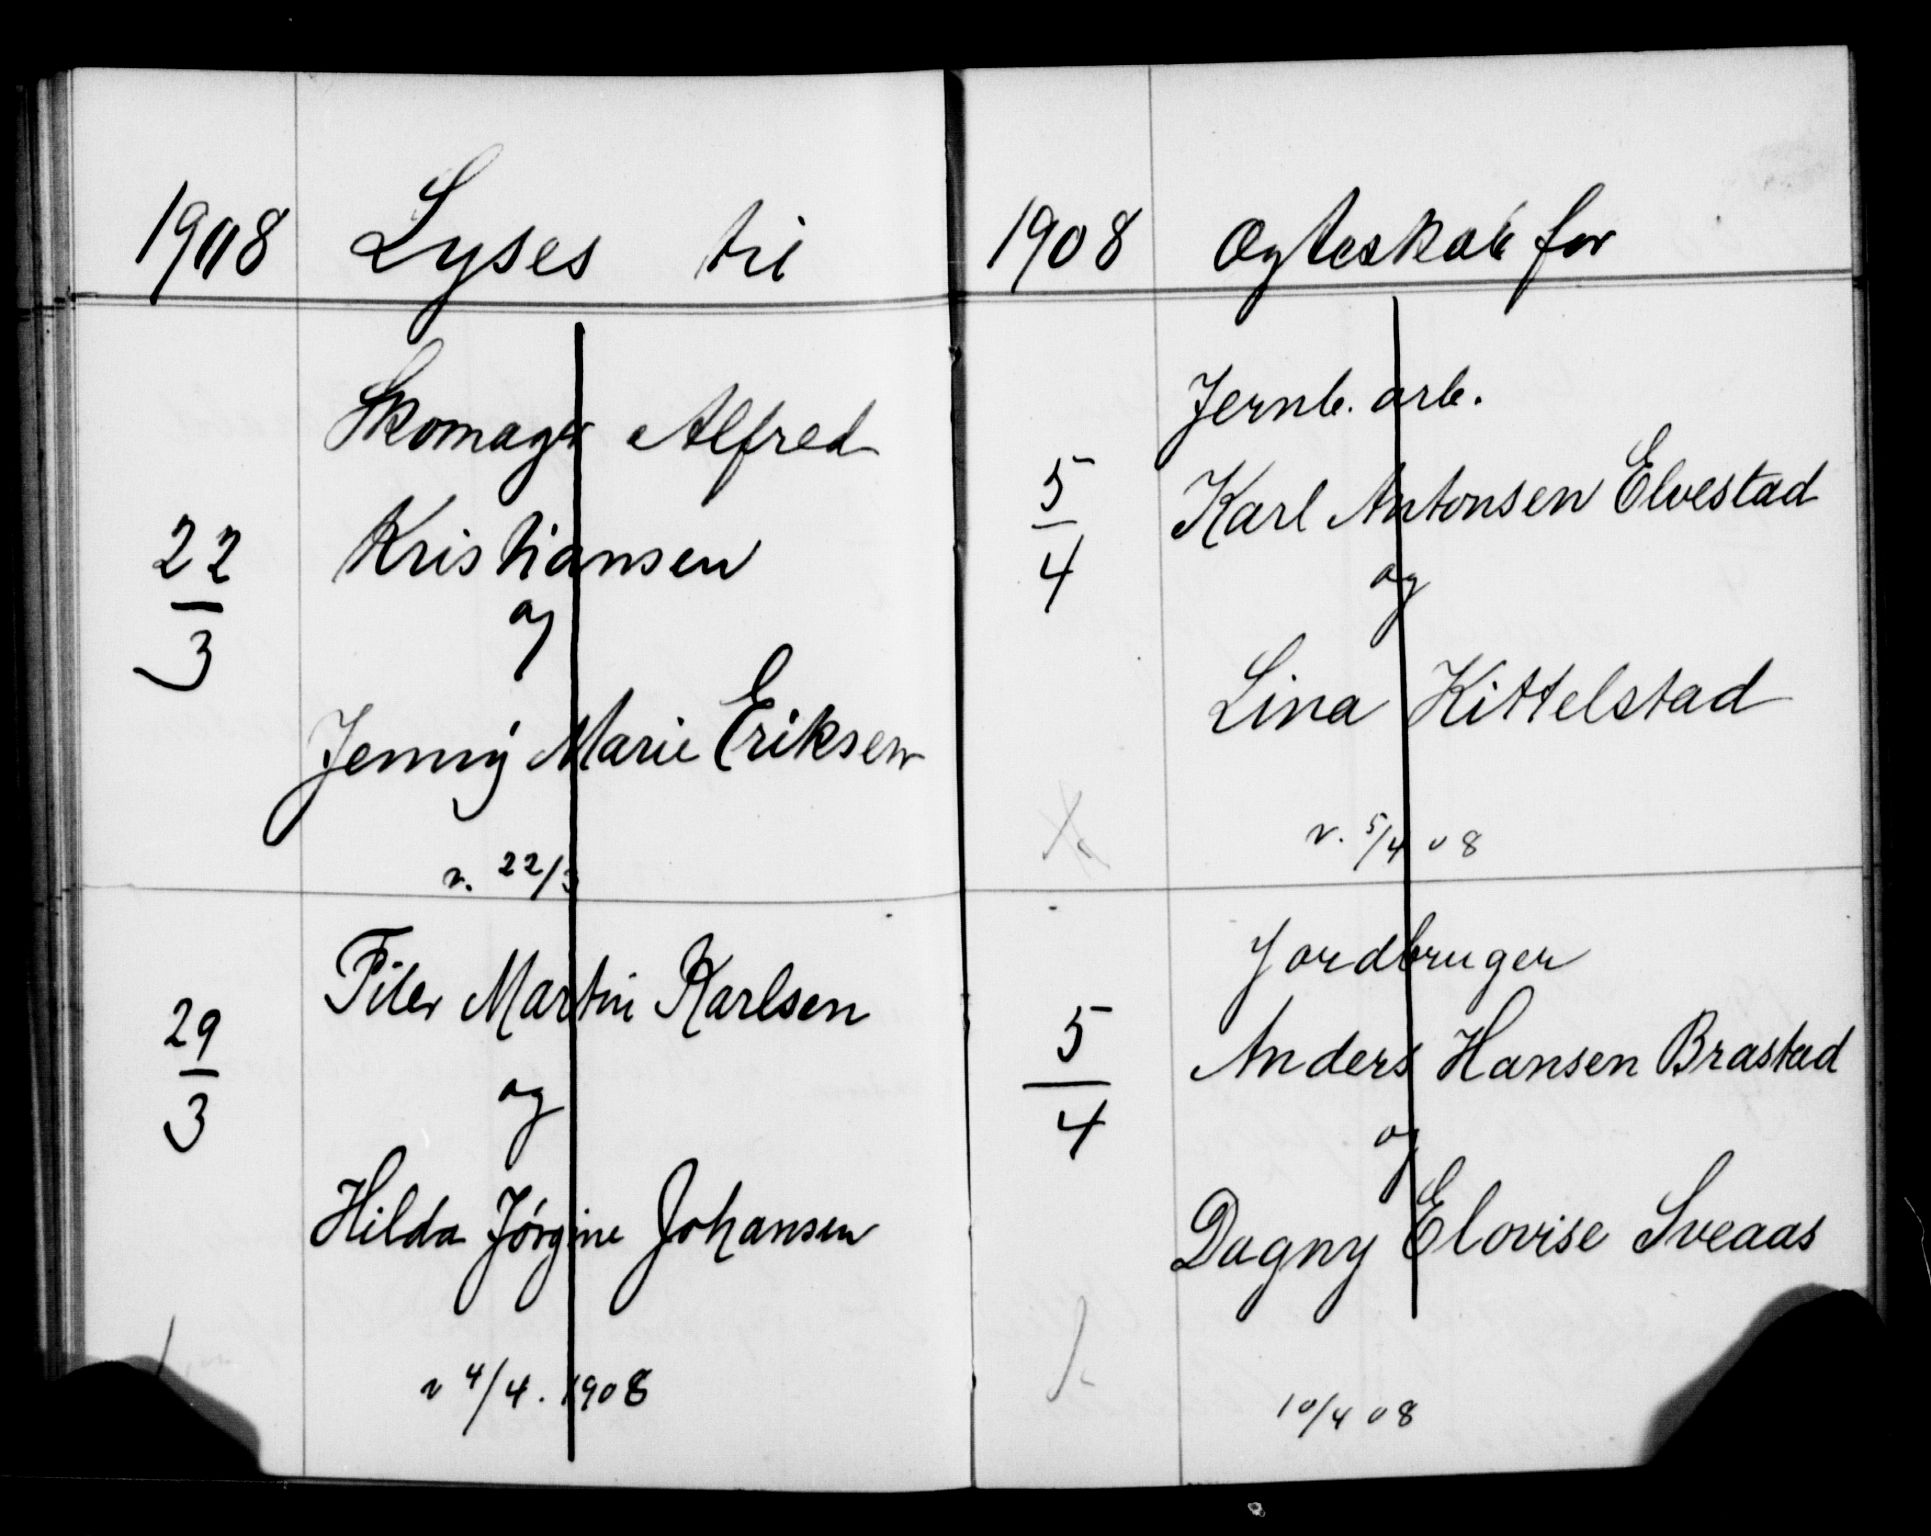 1908 Lyses til
Skomager Alfred
22/3 Kristiansen
og
Jenny Marie Eriksen
v. 22/3
Filer Martin Karlsen
29/3
og
Hilda Jørgine Johansen
v 4/4. 1908
1908 Ægteskab for
Jernb. arb.
5/4 Karl Antonsen Elvestad
og
Lina Kittelstad
v. 5/4 08
Jordbruger
5/4 Anders Hansen Brastad
og
Dagny Elovise Sveaas
10/4 08